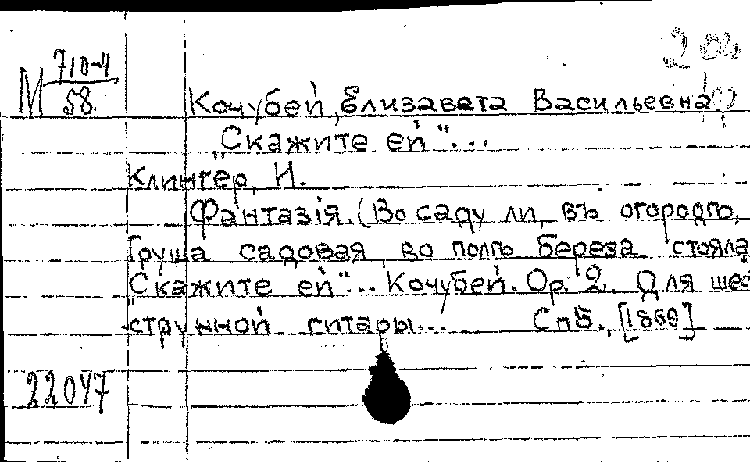 М 710-4
58
Кочубей, Елизавета Васильевна
"Скажите ей"...
Клингер, И.
Фантазія. (Во саду ли, въ огородѣ,
Груша садовая, во полѣ береза стояла
"Скажите ей"... Кочубей. Op. 2. Для шес
струнной гитары... Спб.,
22047